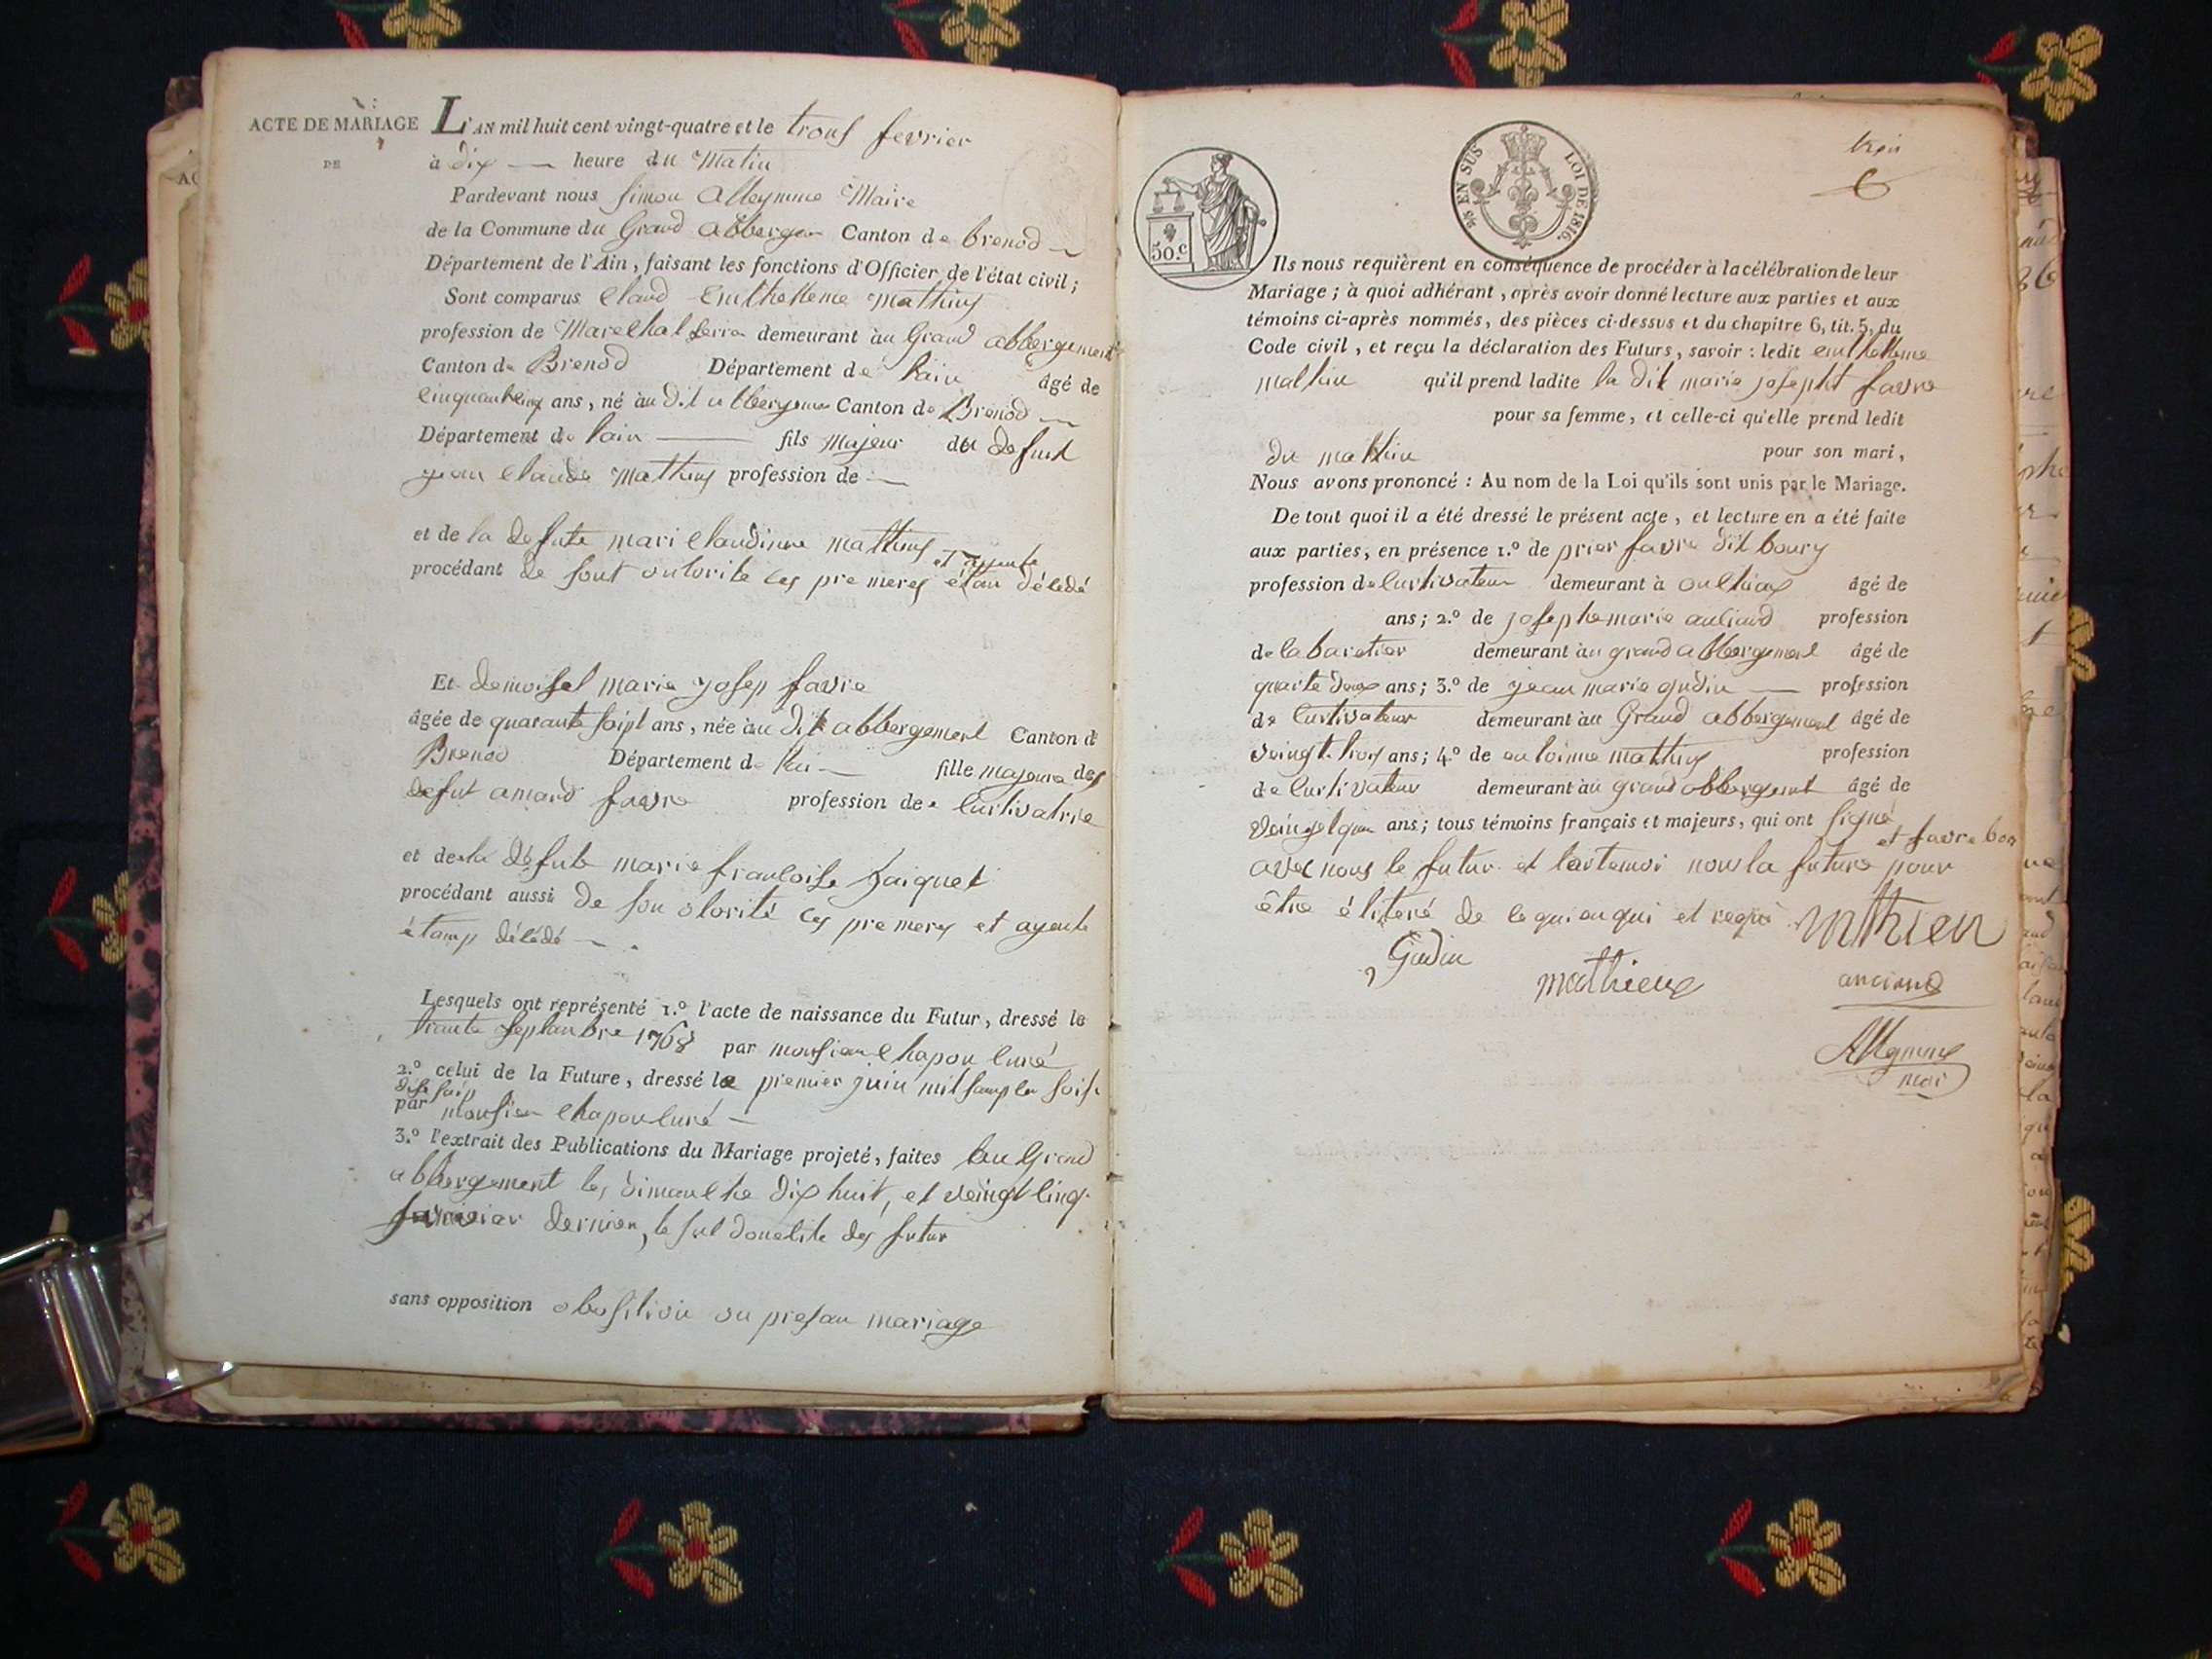 ACTE DE MARIAGE
DE
L'AN mil huit cent vingt-quatre et le trous fevrier
à dix heure du Matin
Pardevant nous simon Alleymme Maire
de la Commune du Grand abbergem Canton de brenod
Département de l'Ain, faisant les fonctions d'Officier de l'état civil;
Sont comparus Claud Emthelleme Mathieux
profession de Marechal ferra demeurant àu Grand abbergement
Canton de Brenod Département de lain âgé de
cinquantcinq ans, né àu dit Canton de Brenod
Département de lain fils Majeur du defunt
jean Claude Mathieux profession de
et de la defute mari Claudinne mathieux
procédant de sont outorite ces pre meres et ayeute étan délédé
Et demoisel marie yosep favre
âgée de quarante soipt ans, née àu dit abbergement Canton d
Brenod Département de fille majeure des
defut amard favre profession de Curtivatrice
et de la défute marie francoise Jaiquet
procédant aussi de sou otorité ces pre meres et ayeute
étamp délédé
Lesquels ont représenté 1.º l'acte de naissance du Futur, dressé le
trante septanbre 1768 par monsieur Chapon Curé
2.º celui de la Future, dressé le premier juin mil
par monsieur Chapon Curé
3.º l'extrait des Publications du Mariage projeté, faites au Grand
abbergement les dimanche dix huit, et veingt cinq
janvier dernier,
sans opposition obositiou ou presan mariage
50.c
EN SUS
LOI DE 1816.
trois
Ils nous requièrent en conséquence de procéder à la célébration de leur
Mariage; à quoi adhérant, après avoir donné lecture aux parties et aux
témoins ci-après nommés, des pièces ci-dessus et du chapitre 6, tit. 5, du
Code civil, et reçu la déclaration des Futurs, savoir: ledit emthelleme
mathieu qu'il prend ladite la dit marie josepht favre
pour sa femme, et celle-ci qu'elle prend ledit
du mathieu pour son mari,
Nous avons prononcé: Au nom de la Loi qu'ils sont unis par le Mariage.
De tout quoi il a été dressé le présent acte, et lecture en a été faite
aux parties, en présence 1.º de prier favre dit boury
profession de Curtivateur demeurant à âgé de
ans; 2.º de josephe marie anciand profession
de Cabaretier demeurant àu grand abbergement âgé de
quarte deux ans; 3.º de jean marie gudin profession
de Curtivateur demeurant àu Grand abbergement âgé de
veingt trois ans; 4.º de entoinne mathieux profession
de Curtivateur demeurant àu grand abbergemt âgé de
ans; tous témoins français et majeurs, qui ont signé
et favre bou
avec nous le futur et non la future pour
être éliteré de ce qui en qui et requi Mthieu
Gudin
Mathieux anciand
Alleymme
mai